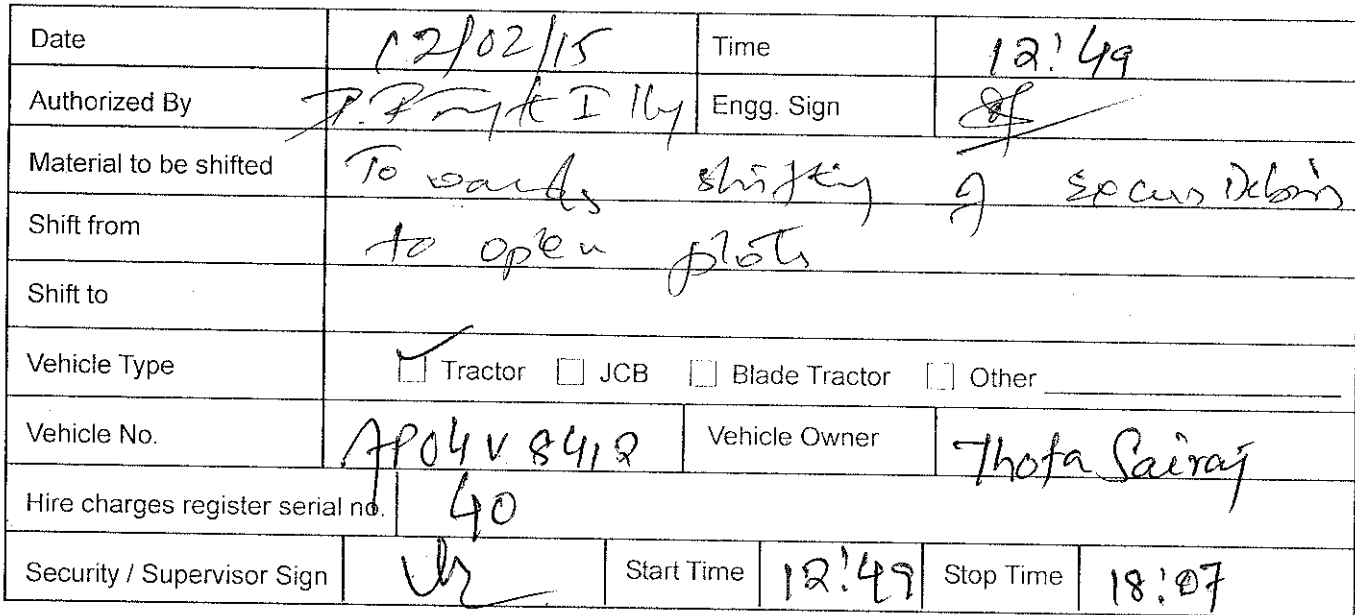 Date 12/02/15 Time 12:49
Authorized By Engg. Sign
Material to be shifted Towards shifting of Debris
Shift from to open plots
Shift to
Vehicle Type Tractor JCB Blade Tractor Other
Vehicle No. AP04V 8412 Vehicle Owner Thota Sairaj
Hire charges register serial no. 40
Security / Supervisor Sign Start Time 12:49 Stop Time 18:07